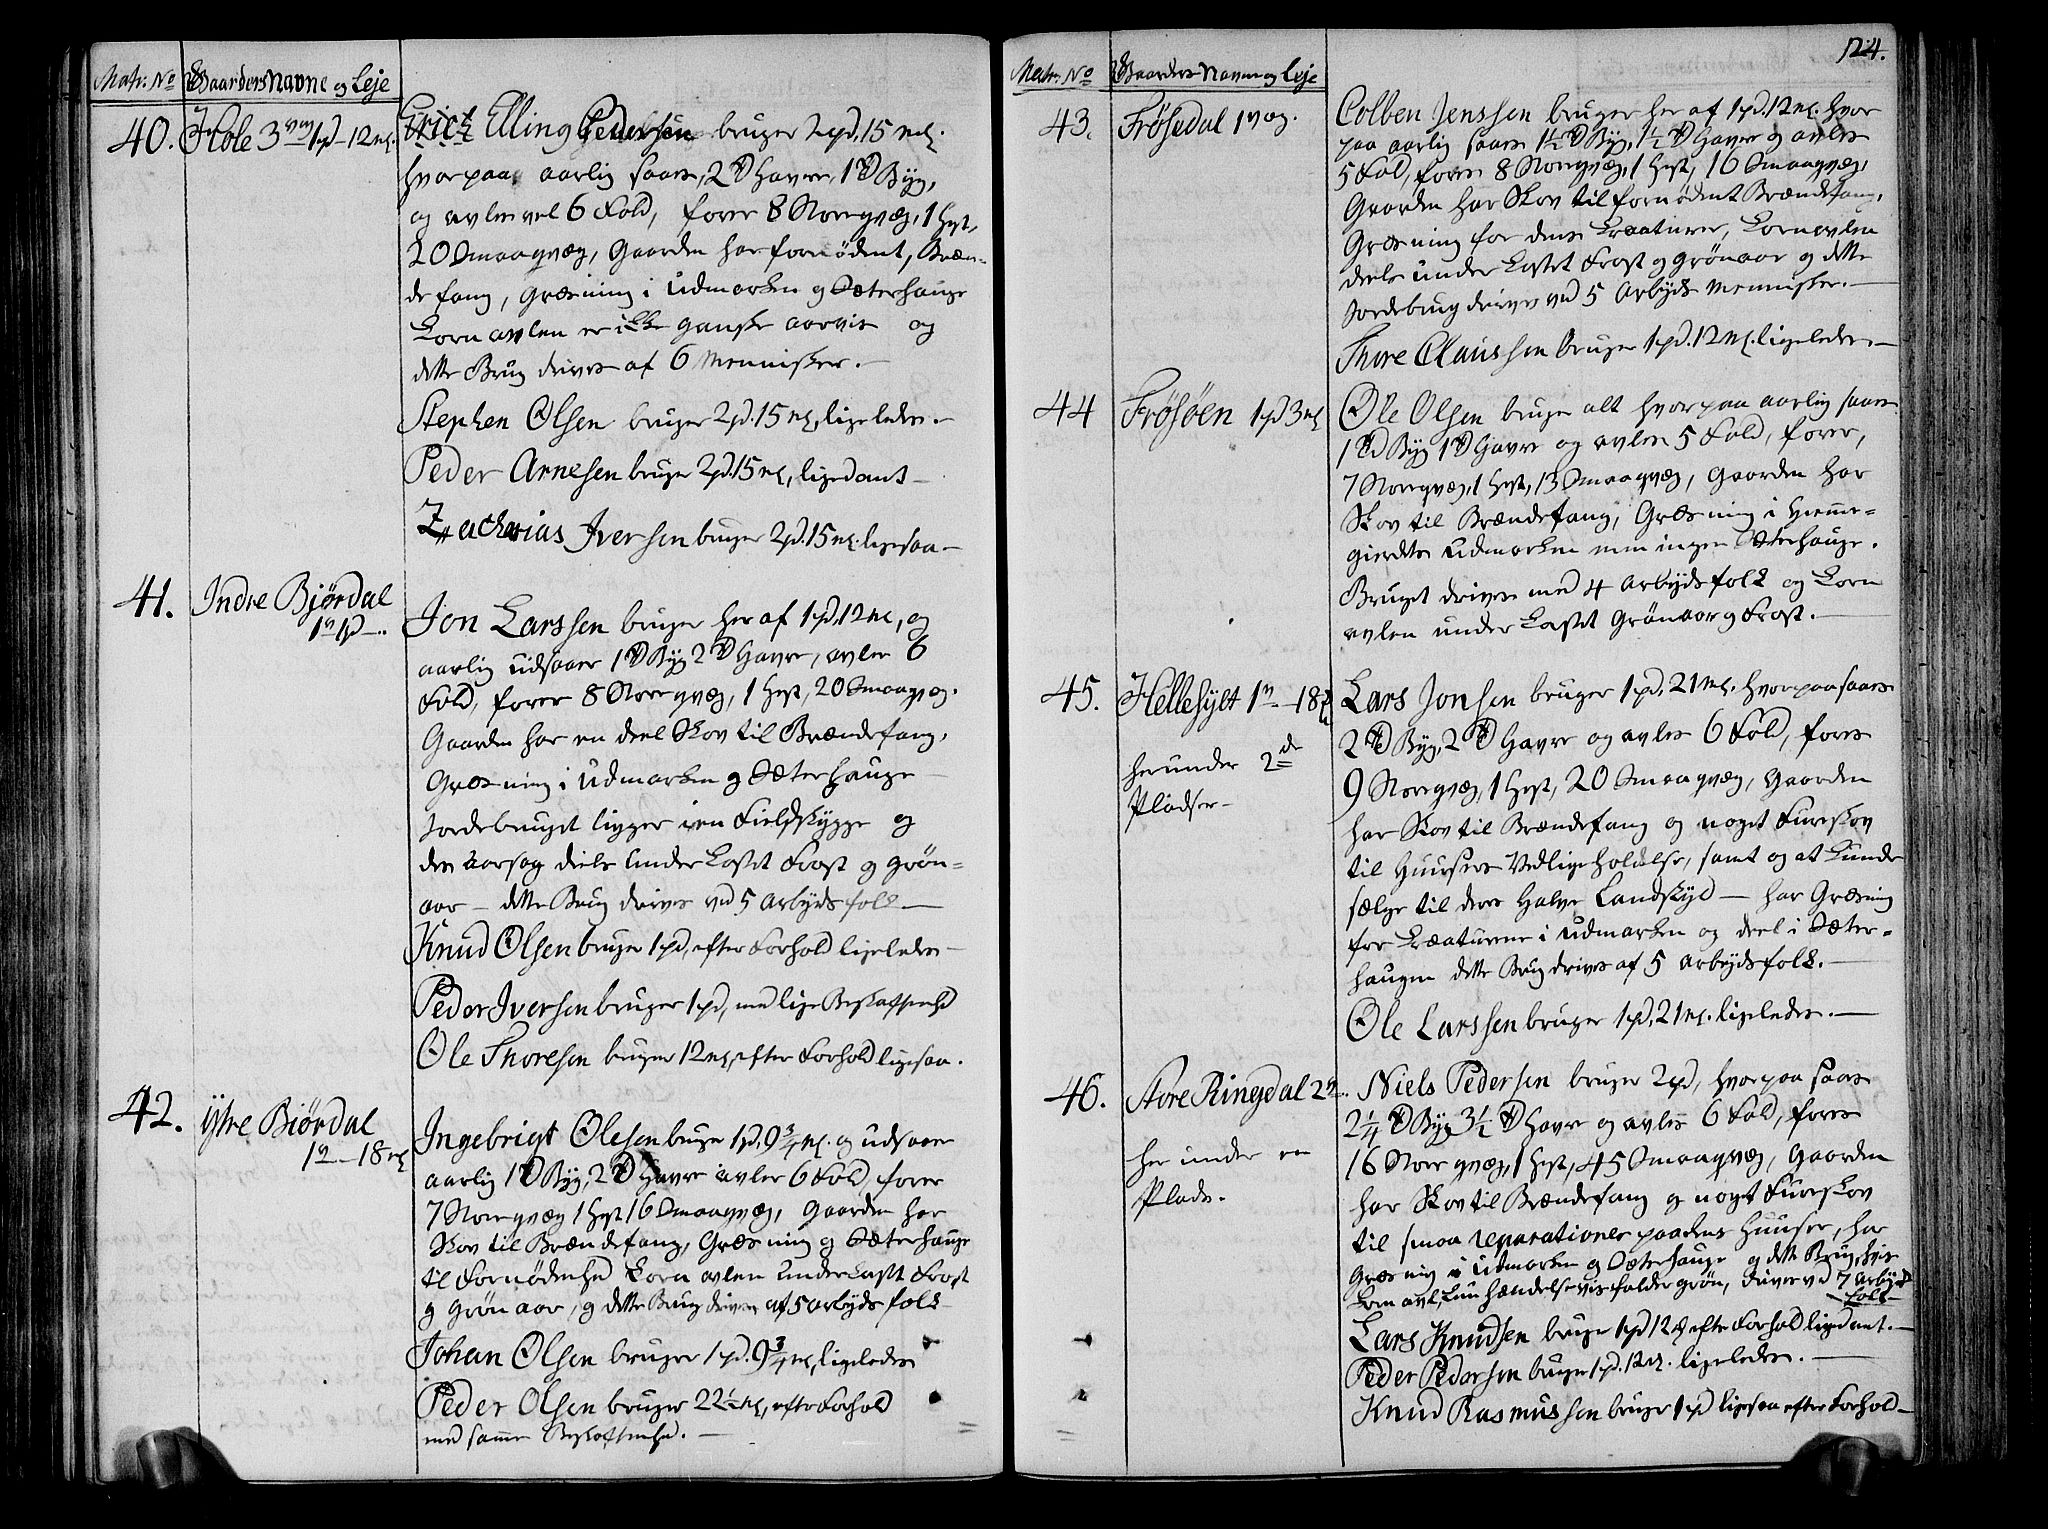 Matr: No Gaardens Navne og Leje
40. Hole 3 vog 1 pd - 12 mk.
Erick Elling Pedersen bruger 2 pd. 15 mk.
hvorpaa aarlig saaes, 2 Td Havre, 1 Td Byg,
og avles vel 6 Fold, foder 8 Storeqvæg, 1 Hest,
20 Smaaqvæg, Gaarden har fornødent, Bræn-
defang, Græsning i Udmarken og Sæterhauge
Kornavlen er ikke ganske aarvis og
dette Brug drives af 6 Mennisker.-
Stephen Olsen bruger 2 pd. 15 mk, ligeledes.-
Peder Arnesen bruger 2 pd. 15 mk, ligedant-
Zacharias Iversen bruger 2 pd. 15 mk. ligesaa-
41. Indre Bjørdal
1 v 1 pd -..
Jon Larssen bruger her af 1 pd. 12 mk, og
aarlig udsaaer 1 Td Byg 2 Td Havre, avler 6
Fold, foder 8 Storeqvæg, 1 Hest, 20 Smaaqvæg.
Gaarden har en deel Skov til Brændefang,
Græsning i Udmarken og Sæterhauge-
Jordebruget ligger i en Fieldskygge og
des aarsag deels underkastet Frost og Grøn-
aar - dette Brug drives ved 5 Arbejdsfolk-
Knud Olsen bruger 1 pd, efter Forhold ligeledes-
Peder Iversen bruger 1 pd, med lige Beskaffenhed
Ole Thoresen bruger 12 mk, efter Forhold ligesaa.
42. Ytre Biørdal
1 v - 18 mk
Ingebrigt Olesen bruger 1 pd. 9 3/4 mk. og udsaaer
aarlig 1 Td Byg, 2 Td Havre avler 6 Fold, foder
7 Storeqvæg 1 Hest 16 Smaaqvæg, Gaarden har
Skov til Brændefang, Græsning og Sæterhauge
til Fornødenhed Kornavlen underkastet Frost
og Grønaar, og dette Brug drives af 5 Arbejdsfolk-
Johan Olsen bruger 1 pd. 9 3/4 mk, ligeledes
Peder Olsen bruger 22 1/2 mk, efter Forhold
med samme Beskaffenhed.-
124.
Matr: No Gaardens Navne og Leje
43. Frøsedal 1 vog.
Colben Jenssen bruger her af 1 pd. 12 mk. hvor
paa aarlig saaes 1 1/2 Td Byg, 1 1/2 Td Havre og avles
5 Fold, fores 8 Storeqvæg, 1 Hest, 16 Smaaqvæg,
Gaarden har Skov til fornødent Brændefang,
Græsning for dens Kreaturer, Kornavlen
deels underkastet Frost og Grønaar og dette
Jordebrug drives ved 5 Arbejds Mennisker.-
Thore Clausson bruger 1 pd. 12 mk. ligeledes-
44 Frøsøen 1 pd 3 mk
Ole Olsen bruger alt hvorpaa aarlig saaes
1 Td Byg 1 Td Havre og avles 5 Fold, fores,
7 Storeqvæg, 1 Hest, 13 Smaaqvæg, Gaarden har
Skov til Brændefang, Græsning i Hieme-
gierdets Udmarken men ingen Sæterhauge.
Bruget drives med 4 Arbejdsfolk og Korn
avlen underkastet Grønaar og Frost.-
45. Hellesylt 1 v - 18 mk
herunder 2de
Pladser-
Lars Jonsen bruger 1 pd, 21 mk. hvorpaa saaes
2 Td Byg, 2 Td Havre og avles 6 Fold, fores
9 Storeqvæg, 1 Hest, 20 Smaaqvæg, Gaarden
har Skov til Brændefang og noget Fureskov
til Huusers Vedligeholdelse, samt og at kunde
sælge til deres halve Landskyld - har Græsning
for Kreaturene i Udmarken og deel i Sæter-
haugen dette Brug drives af 5 Arbejdsfolk.-
Ole Larssen bruger 1 pd, 21 mk. ligeledes.-
46. Store Ringdal 2 v..
her under en
Plads.
Niels Pedersen bruger 2 pd, hvorpaa saaes
2 1/4 Td Byg 3 1/2 Td Havre og avles 6 Fold, fores
16 Storeqvæg, 1 Hest, 45 Smaaqvæg, Gaarden
har Skov til Brændefang og noget Fureskov
til smaa reparationer paa dens Huuser, har
Græsning i Udmarken og Sæterhauge og dette Brug, hvis
Kornavl, kun hændelsesvis falder grøn, drives ved 7 Arbejds
folk-
Lars Knudsen bruger 1 pd 12 mk efter Forhold ligedant.-
Peder Pedersen bruger 1 pd. 12 mk. ligeledes.-
Knud Rasmussen bruger 1 pd ligesaa efter Forhold-